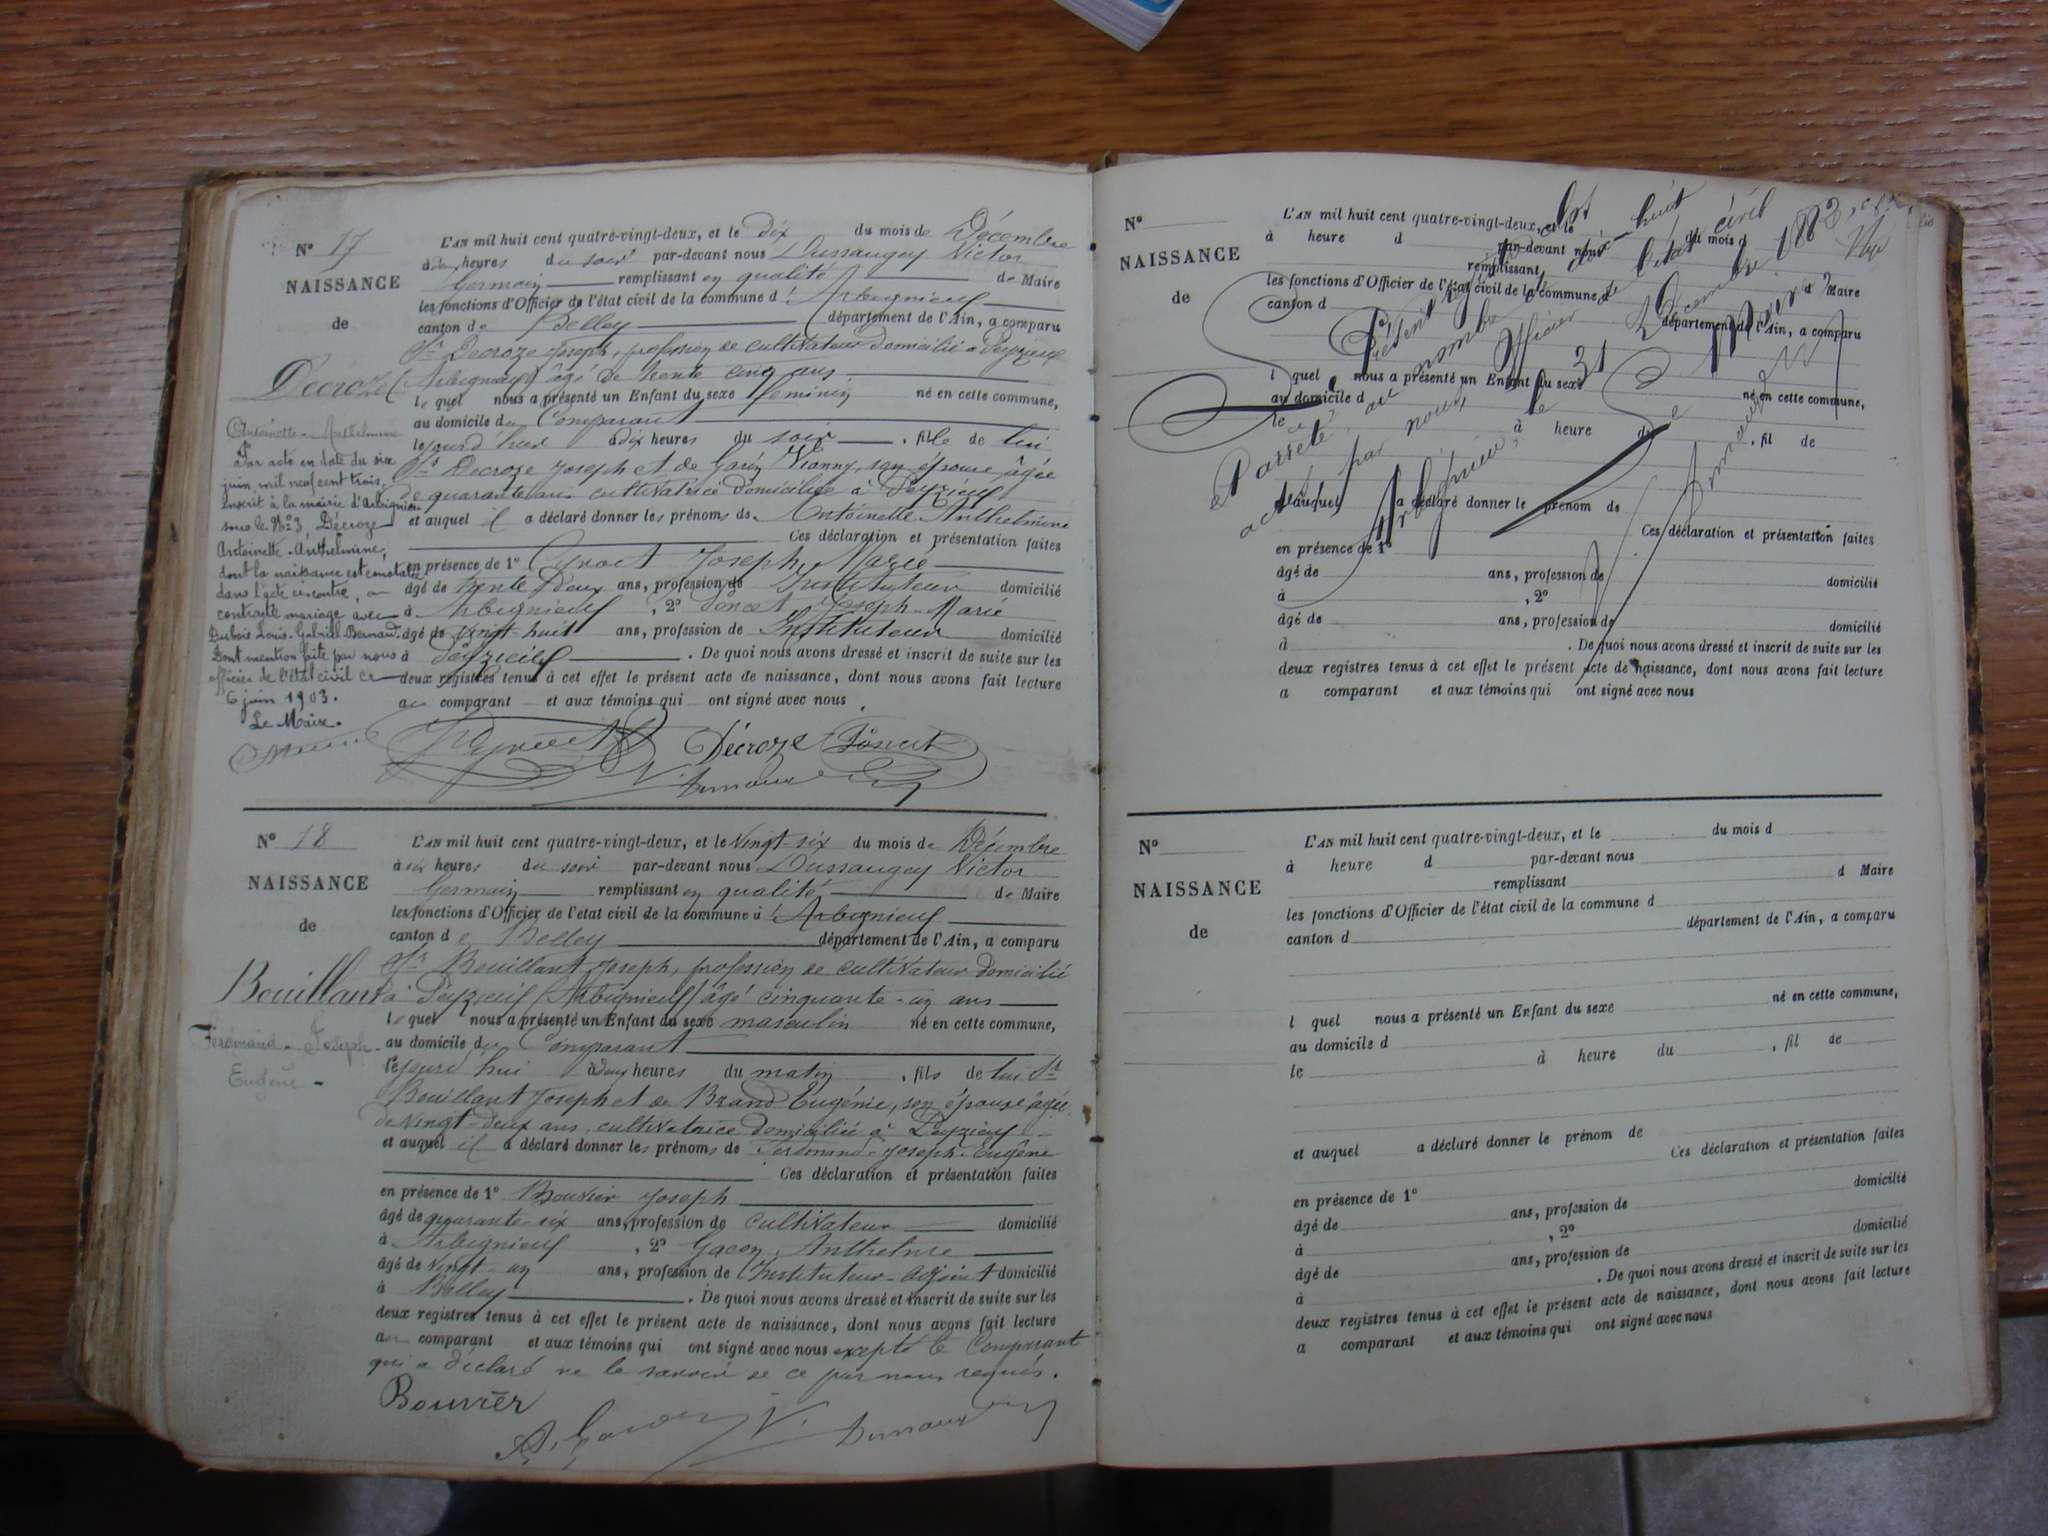 N° 17
NAISSANCE
de
Décroze
Antoinette-Anthelmine
Par acte en date du six
juin mil neuf cent trois,
inscrit à la mairie d'Arbignieu
sous le N° 3, Décroze
Antoinette-Anthelmine,
dont la naissance est constatée
dans l'acte ci-contre, a
contracté mariage avec
Dubois Louis-Gabriel-Bernard.
Dont mention faite par nous
officier de l'état civil ce
6 juin 1903.
Le Maire.
L'AN mil huit cent quatre-vingt-deux, et le dix du mois de Décembre
heures du soir par-devant nous Dussaugey Victor
Germain remplissant en qualité de Maire
les fonctions d'Officier de l'état civil de la commune d'Arbignieu
canton de Belley département de l'Ain, a comparu
Sr Decroze Joseph, profession de cultivateur domicilié à Peyzieu
(Arbignieu) âgé de trente cinq ans
lequel nous a présenté un Enfant du sexe féminin né en cette commune,
au domicile du Comparant
le jourd'hui à dix heures du soir, fille de lui
Sr Decroze Joseph et de Garin Vianny, son épouse, âgée
de quarante ans cultivatrice domiciliée à Peyzieu
et auquel il a déclaré donner les prénoms de Antoinette Anthelmine
Ces déclaration et présentation faites
en présence de 1° Joseph Marie
âgé de trente deux ans, profession de Instituteur domicilié
à Arbignieu, 2° Poncet Joseph-Marie
âgé de vingt-huit ans, profession de Instituteur domicilié
à Peyzieu. De quoi nous avons dressé et inscrit de suite sur les
deux registres tenus à cet effet le présent acte de naissance, dont nous avons fait lecture
au comparant et aux témoins qui ont signé avec nous
Décroze Poncet
N° 18
NAISSANCE
de
Bouillant
Ferdinand-Joseph-
Eugène
L'AN mil huit cent quatre-vingt-deux, et le vingt-six du mois de Décembre
à six heures du soir par-devant nous Dussaugey Victor
Germain remplissant en qualité de Maire
les fonctions d'Officier de l'état civil de la commune d'Arbignieu
canton de Belley département de l'Ain, a comparu
Sr Bouillant Joseph, profession de cultivateur domicilié
à Peyzieu (Arbignieu) âgé cinquante-un ans
lequel nous a présenté un Enfant du sexe masculin né en cette commune,
au domicile du Comparant
le jourd'hui à deux heures du matin, fils de lui Sr
Bouillant Joseph et de Brand Eugénie, son épouse âgée
de vingt-deux ans, cultivatrice domiciliée à Peyzieu
et auquel il a déclaré donner les prénoms de Ferdinand-Joseph-Eugène
Ces déclaration et présentation faites
en présence de 1° Bouvier Joseph
âgé de quarante-six ans, profession de cultivateur domicilié
à Arbignieu, 2° Gacon Anthelme
âgé de vingt-un ans, profession de Instituteur-adjoint domicilié
à Belley. De quoi nous avons dressé et inscrit de suite sur les
deux registres tenus à cet effet le présent acte de naissance, dont nous avons fait lecture
au comparant et aux témoins qui ont signé avec nous excepté le Comparant
qui a déclaré ne le savoir de ce par nous requis.
Bouvier
N°
NAISSANCE
de
L'AN mil huit cent quatre-vingt-deux, et le du mois d
à heure d par-devant nous
remplissant d Maire
les fonctions d'Officier de l'état civil de la commune d
canton d département de l'Ain, a comparu
l quel nous a présenté un Enfant du sexe né en cette commune,
au domicile d
le à heure du, fil de
et auquel a déclaré donner le prénom de
Ces déclaration et présentation faites
en présence de 1°
âgé de ans, profession de domicilié
à, 2°
âgé de ans, profession de domicilié
à. De quoi nous avons dressé et inscrit de suite sur les
deux registres tenus à cet effet le présent acte de naissance, dont nous avons fait lecture
a comparant et aux témoins qui ont signé avec nous
Présent
et arrêté au nombre de dix-huit
actes par nous, Officier de l'état civil
Arbignieu, le 31 Décembre 1882
N°
NAISSANCE
de
L'AN mil huit cent quatre-vingt-deux, et le du mois d
à heure d par-devant nous
remplissant d Maire
les fonctions d'Officier de l'état civil de la commune d
canton d département de l'Ain, a comparu
l quel nous a présenté un Enfant du sexe né en cette commune,
au domicile d
le à heure du, fil de
et auquel a déclaré donner le prénom de
Ces déclaration et présentation faites
en présence de 1°
âgé de ans, profession de domicilié
à, 2°
âgé de ans, profession de domicilié
à. De quoi nous avons dressé et inscrit de suite sur les
deux registres tenus à cet effet le présent acte de naissance, dont nous avons fait lecture
a comparant et aux témoins qui ont signé avec nous